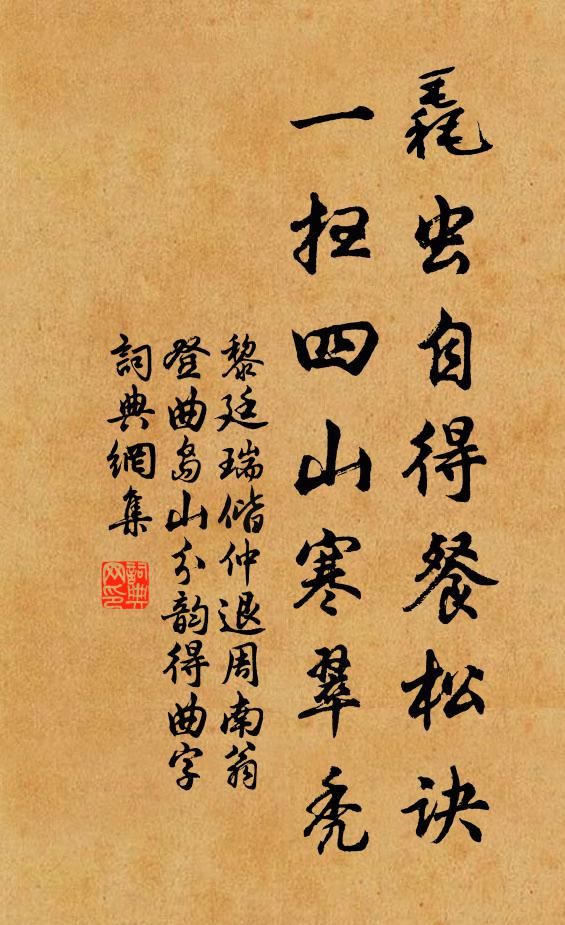 毳虫自得餐松诀
一扫四山寒翠秃
黎廷瑞偕仲退周南翁
登曲岛山分韵得曲字
詞典網集
詞典网印